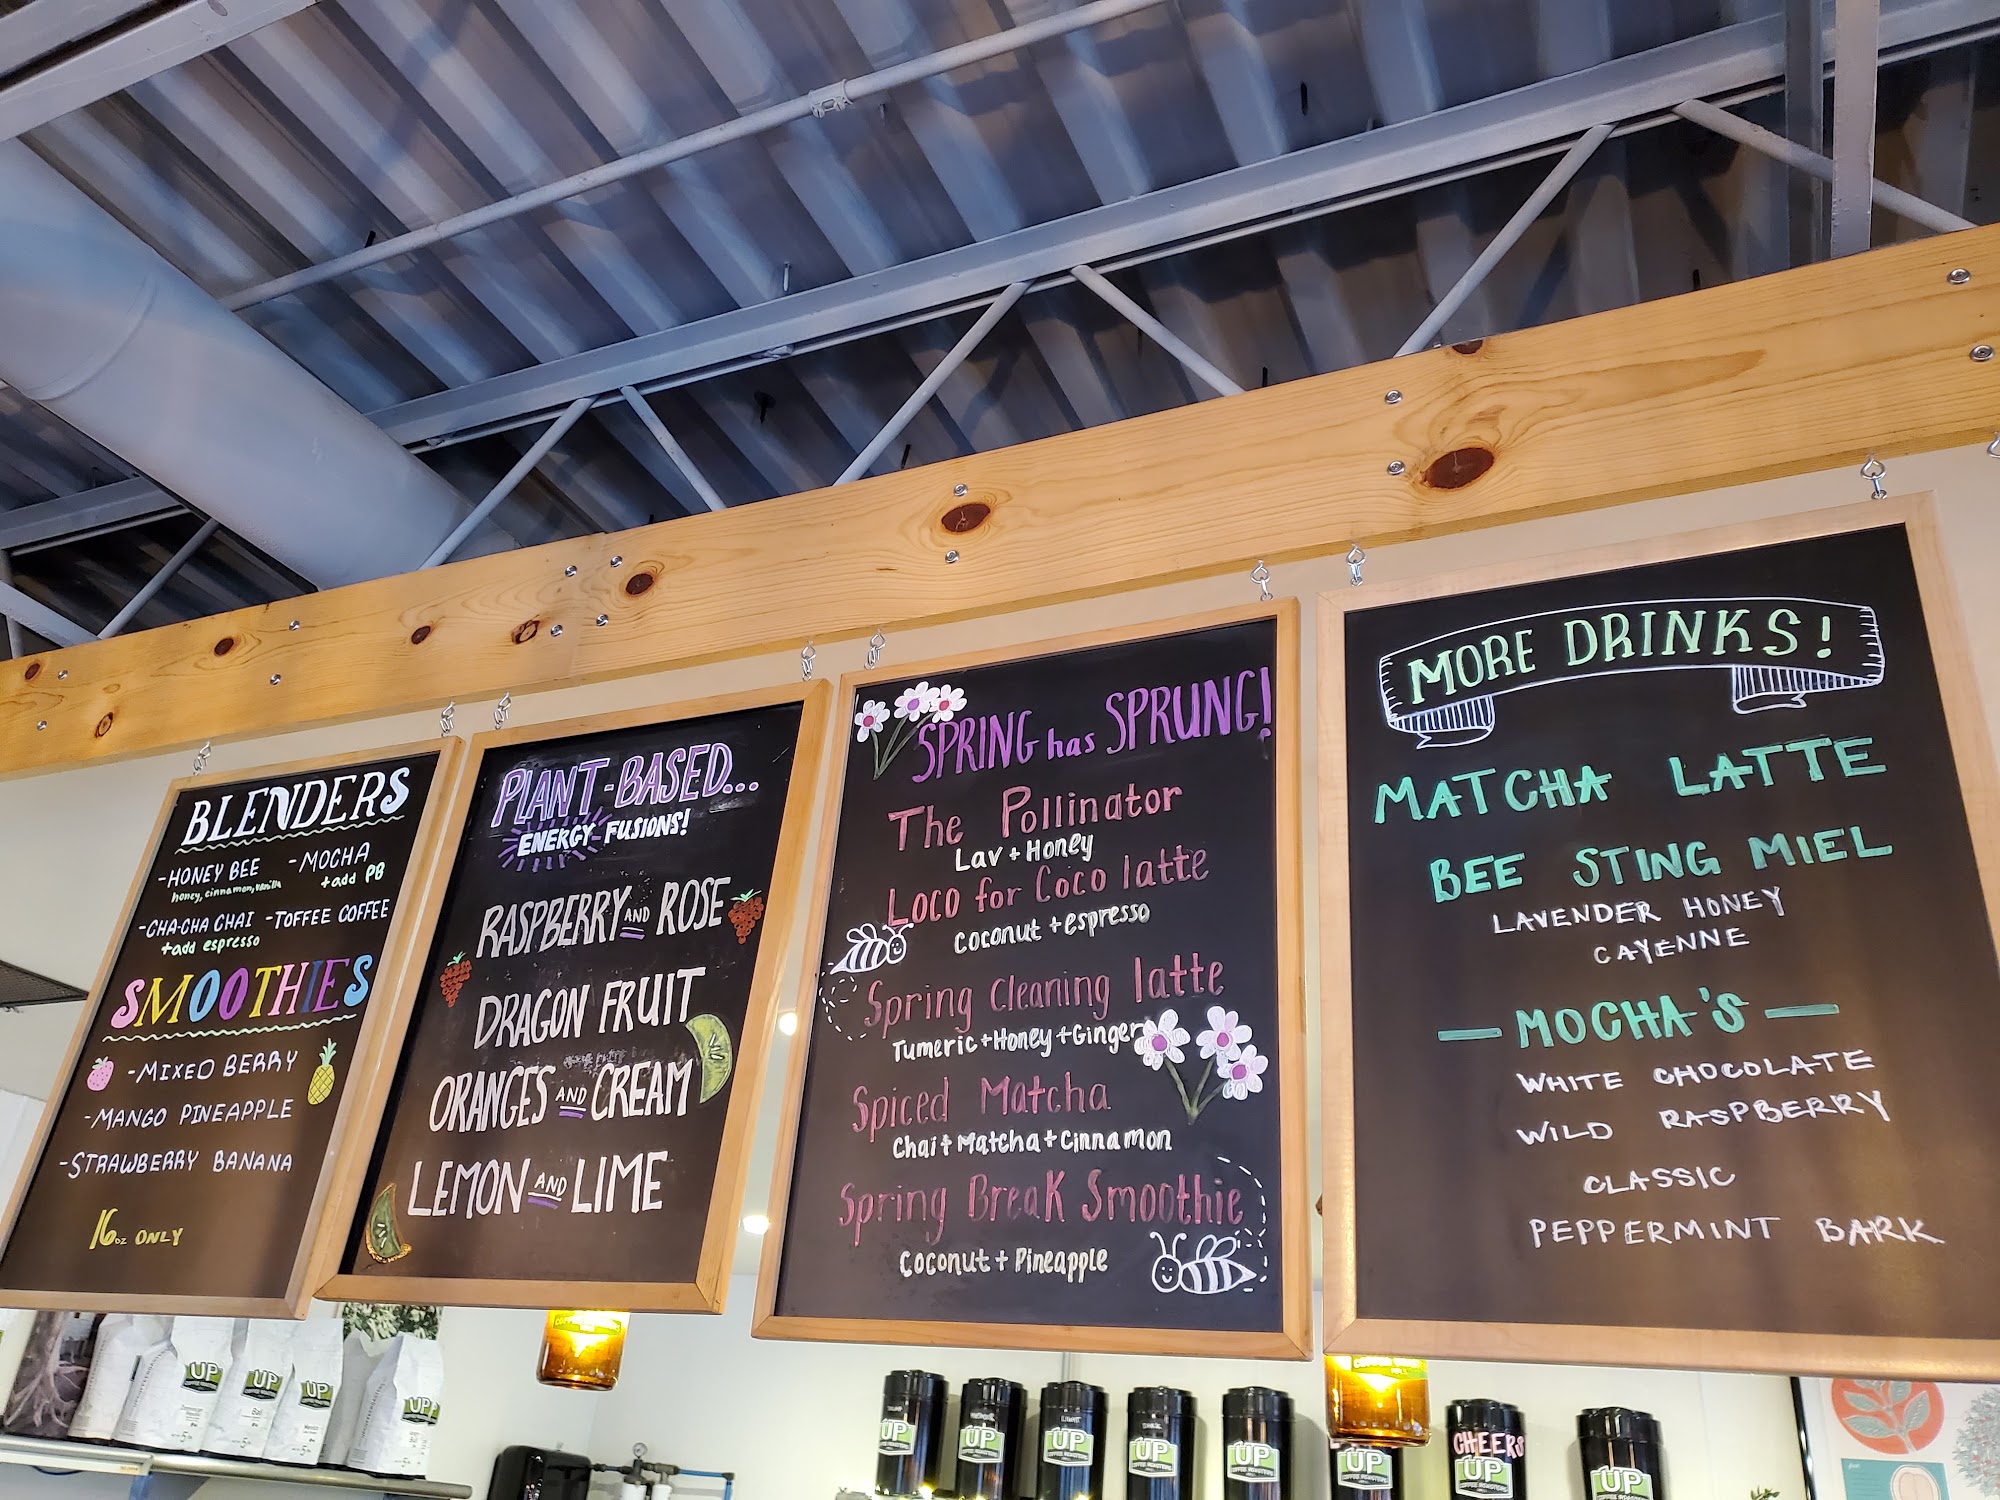 BLENDERS
-HONEY BEE
honey, cinnamon, vanilla
-MOCHA
+add PB
-CHA-CHA CHAI
+add espresso
-TOFFEE COFFEE
SMOOTHIES
-MIXED BERRY
-MANGO PINEAPPLE
-STRAWBERRY BANANA
16oz ONLY
PLANT-BASED...
ENERGY FUSIONS!
RASPBERRY AND ROSE
DRAGON FRUIT
ORANGES AND CREAM
LEMON AND LIME
SPRING has SPRUNG!
The Pollinator
Lav + Honey
Loco for Coco latte
Coconut + espresso
Spring Cleaning latte
Tumeric + Honey + Ginger
Spiced Matcha
Chai + Matcha + Cinnamon
Spring Break Smoothie
Coconut + Pineapple
MORE DRINKS!
MATCHA LATTE
BEE STING MIEL
LAVENDER HONEY
CAYENNE
— MOCHA'S —
WHITE CHOCOLATE
WILD RASPBERRY
CLASSIC
PEPPERMINT BARK
UP
UP
UP
UP
UP
COFFEE ROASTERS
UP
COFFEE ROASTERS
UP
COFFEE ROASTERS
UP
COFFEE ROASTERS
UP
COFFEE ROASTERS
UP
COFFEE ROASTERS
CHEERS
UP
COFFEE ROASTERS
UP